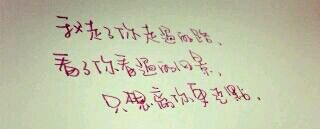 我走了你走過的路，
看了你看過的風景，
只想離你更近點，